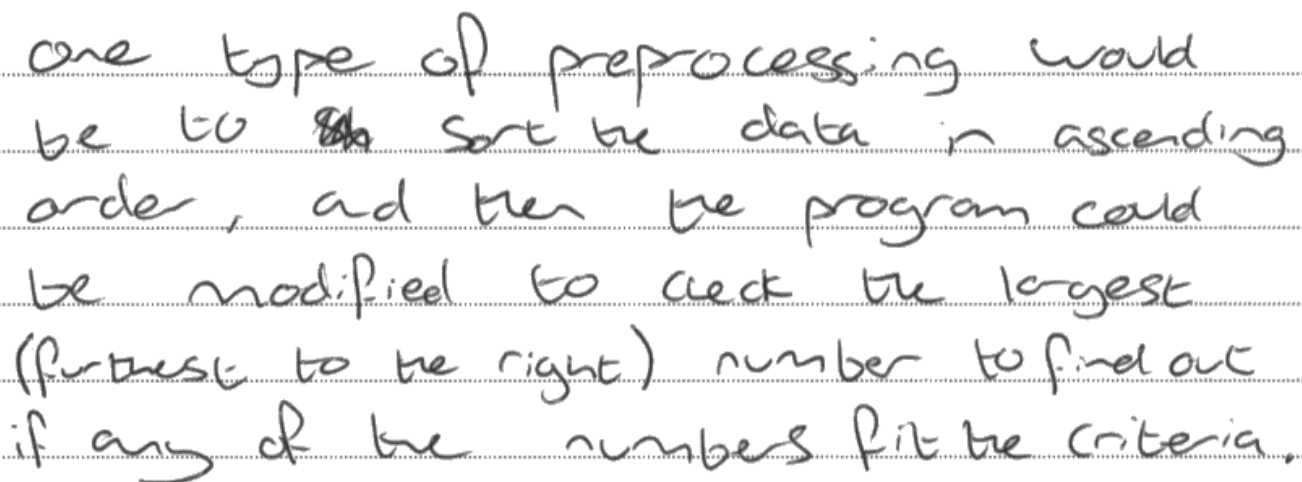 one type of preprocessing would
be to sort the data in ascending
order, and then the program could
be modified to check the largest
(furthest to the right) number to find out
if any of the numbers fit the criteria.